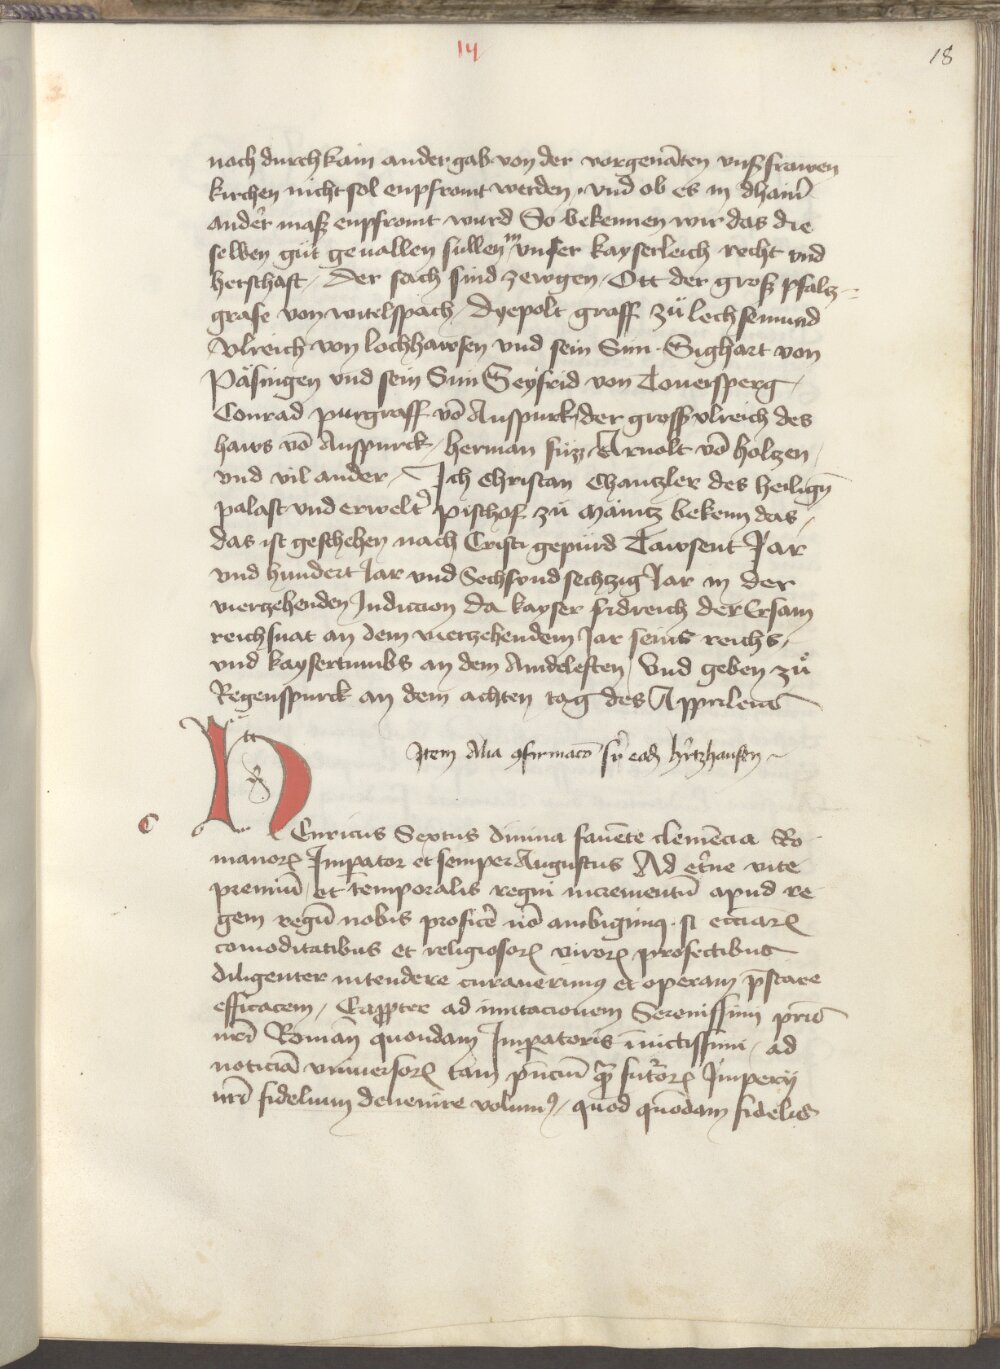 14
18
noch durch kain ander gab von der vorgenāten vnßfrawen
kirchen nicht sol enpfromt werden . vnd ob es in dhainē
ander maß enpfromt wurd So bekennen wir das die
selben güt geuallen süllen in vnser kayserleich recht vnd
herschaft / Der sach sind zewgen / Ott der groß pfaltz
grafe von witelspach / Dyepolt graff zů lechsemund
Vlreich von lochhawsen vnd sein Sun . Sighart von
Päsingen vnd sein Sun Seyfrid von Touersperg /
Conrad purgraff vō Auspurk / der gross vlreich des
haws vō Auspurck / herman süz / Arnolt vō holtzen /
vnd vil ander / Ich Christan Chantzler des heilign̄
palast vnd erwelt' pischof zů Mäintz bekenn das /
das ist geschehen nach Cristi gepürd Tawsent Jar
vnd hundert Jar vnd Sechsvnd sechtzig Jar in der
viertzehenden Indiccion da kayser fridreich der Ersam
reichsnat an dem viertzehendem Jar seins reichs /
vnd kaysertumbs an dem Aindelesten / Vnd geben zů
Regenspurck an dem achten tag des Apprilens
Item Alia ꝯfirmacō sr̄ eadē
H
Enricus Sextus diuina fauēte clemēcia Ro
manorꝝ Imꝑator et semper Augustus Ad et'ne vite
premiū et temporalis regni incrementū apud re
gem regū nobis proficẽ nō ambigimꝰ . si ecciarꝝ
comoditatibus et religiosorꝝ virorꝝ profectibus
diligenter intendere curauerimꝰ et operam p̄stare
efficacem / Eapropter ad imitacionem Serenissimi pr̄is
nr̄i Roman̄ quondam Imꝑatoris inuictissimi / ad
noticiā vniuersorꝝ tam pn̄cium quā futurorꝝ Imperij
nr̄i fidelium deuenire volumꝰ / quod quōdam fidelis